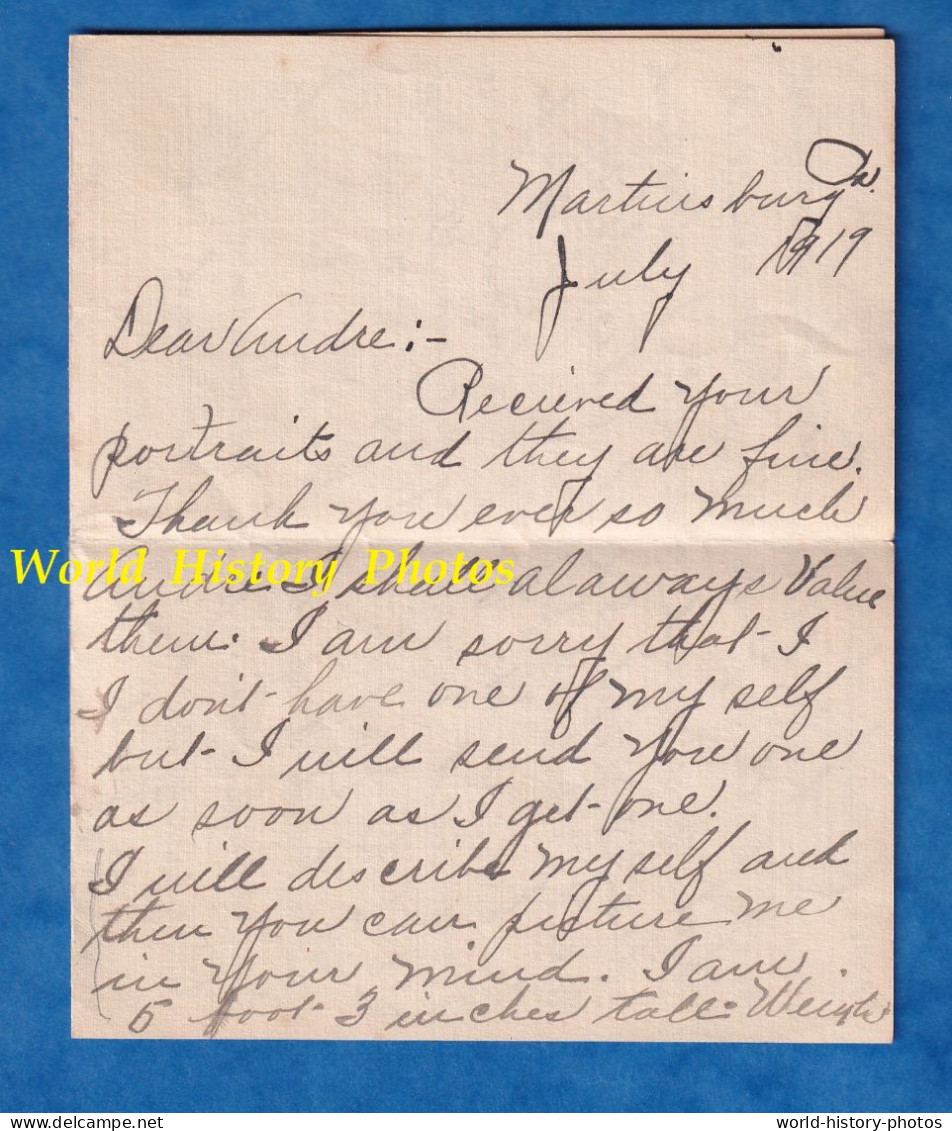 Martinsburg Pa.
July 1919
Dear Andre:-
Recieved your
portraits and they are fine.
Thank you ever so much
Andre I shall alaways Value
them. I am sorry that I
I don't have one of my self
but I will send you one
as soon as I get one.
I will describe my self and
then you can picture me
in your mind. I am
5 foot 3 inches tall. Weigh
World History Photos
delcampe.net
world-history-photos